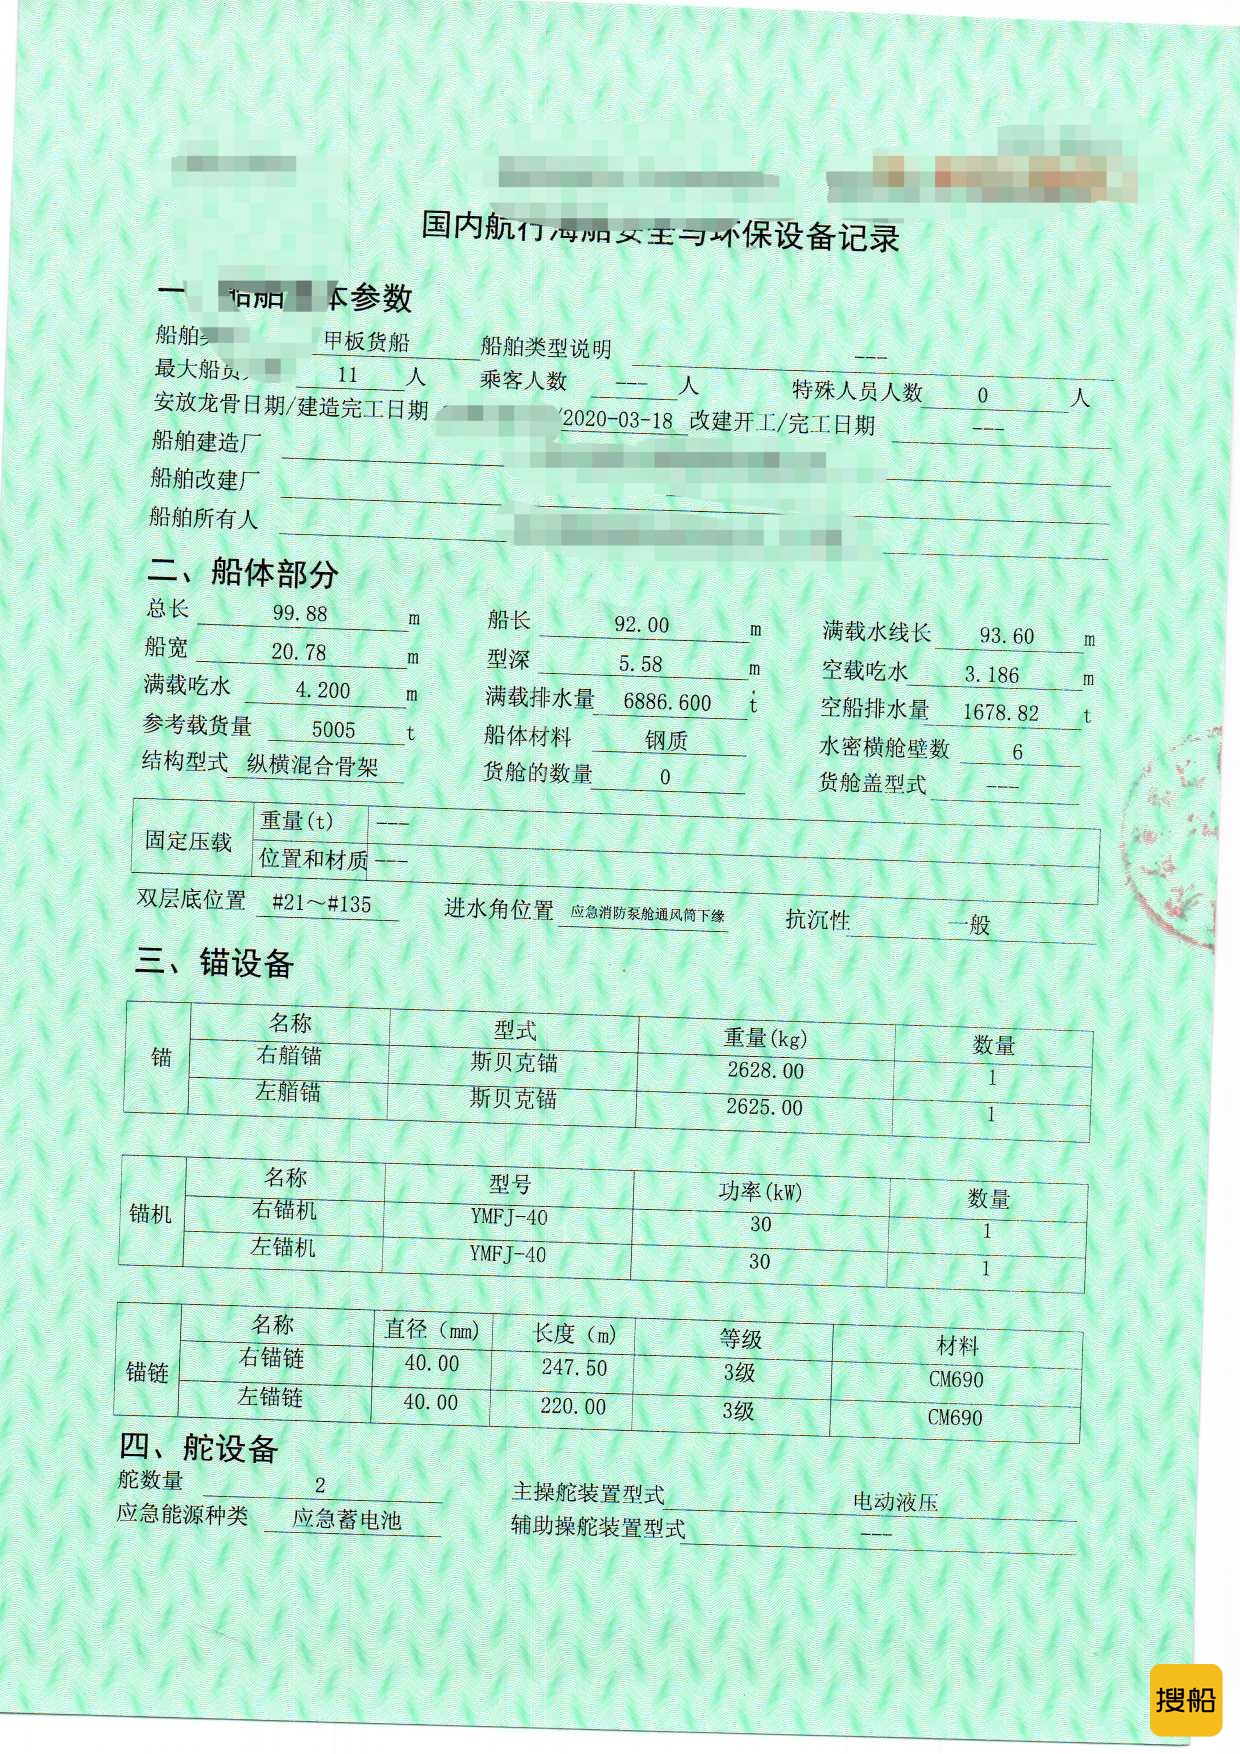 国内航行海船安全与环保设备记录
一 船舶 本参数
船舶 甲板货船 船舶类型说明 ---
最大船员 11 人 乘客人数 --- 人 特殊人员人数 0 人
安放龙骨日期/建造完工日期 /2020-03-18 改建开工/完工日期 ---
船舶建造厂
船舶改建厂
船舶所有人
二、船体部分
总长 99.88 m 船长 92.00 m 满载水线长 93.60 m
船宽 20.78 m 型深 5.58 m 空载吃水 3.186 m
满载吃水 4.200 m 满载排水量 6886.600 t 空船排水量 1678.82 t
参考载货量 5005 t 船体材料 钢质 水密横舱壁数 6
结构型式 纵横混合骨架 货舱的数量 0 货舱盖型式 ---
固定压载 重量(t) ---
位置和材质 ---
双层底位置 #21～#135 进水角位置 应急消防泵舱通风筒下缘 抗沉性 一般
三、锚设备
锚 名称 型式 重量(kg) 数量
右艏锚 斯贝克锚 2628.00 1
左艏锚 斯贝克锚 2625.00 1
锚机 名称 型号 功率(kW) 数量
右锚机 YMFJ-40 30 1
左锚机 YMFJ-40 30 1
锚链 名称 直径（mm) 长度（m) 等级 材料
右锚链 40.00 247.50 3级 CM690
左锚链 40.00 220.00 3级 CM690
四、舵设备
舵数量 2 主操舵装置型式 电动液压
应急能源种类 应急蓄电池 辅助操舵装置型式 ---
搜船